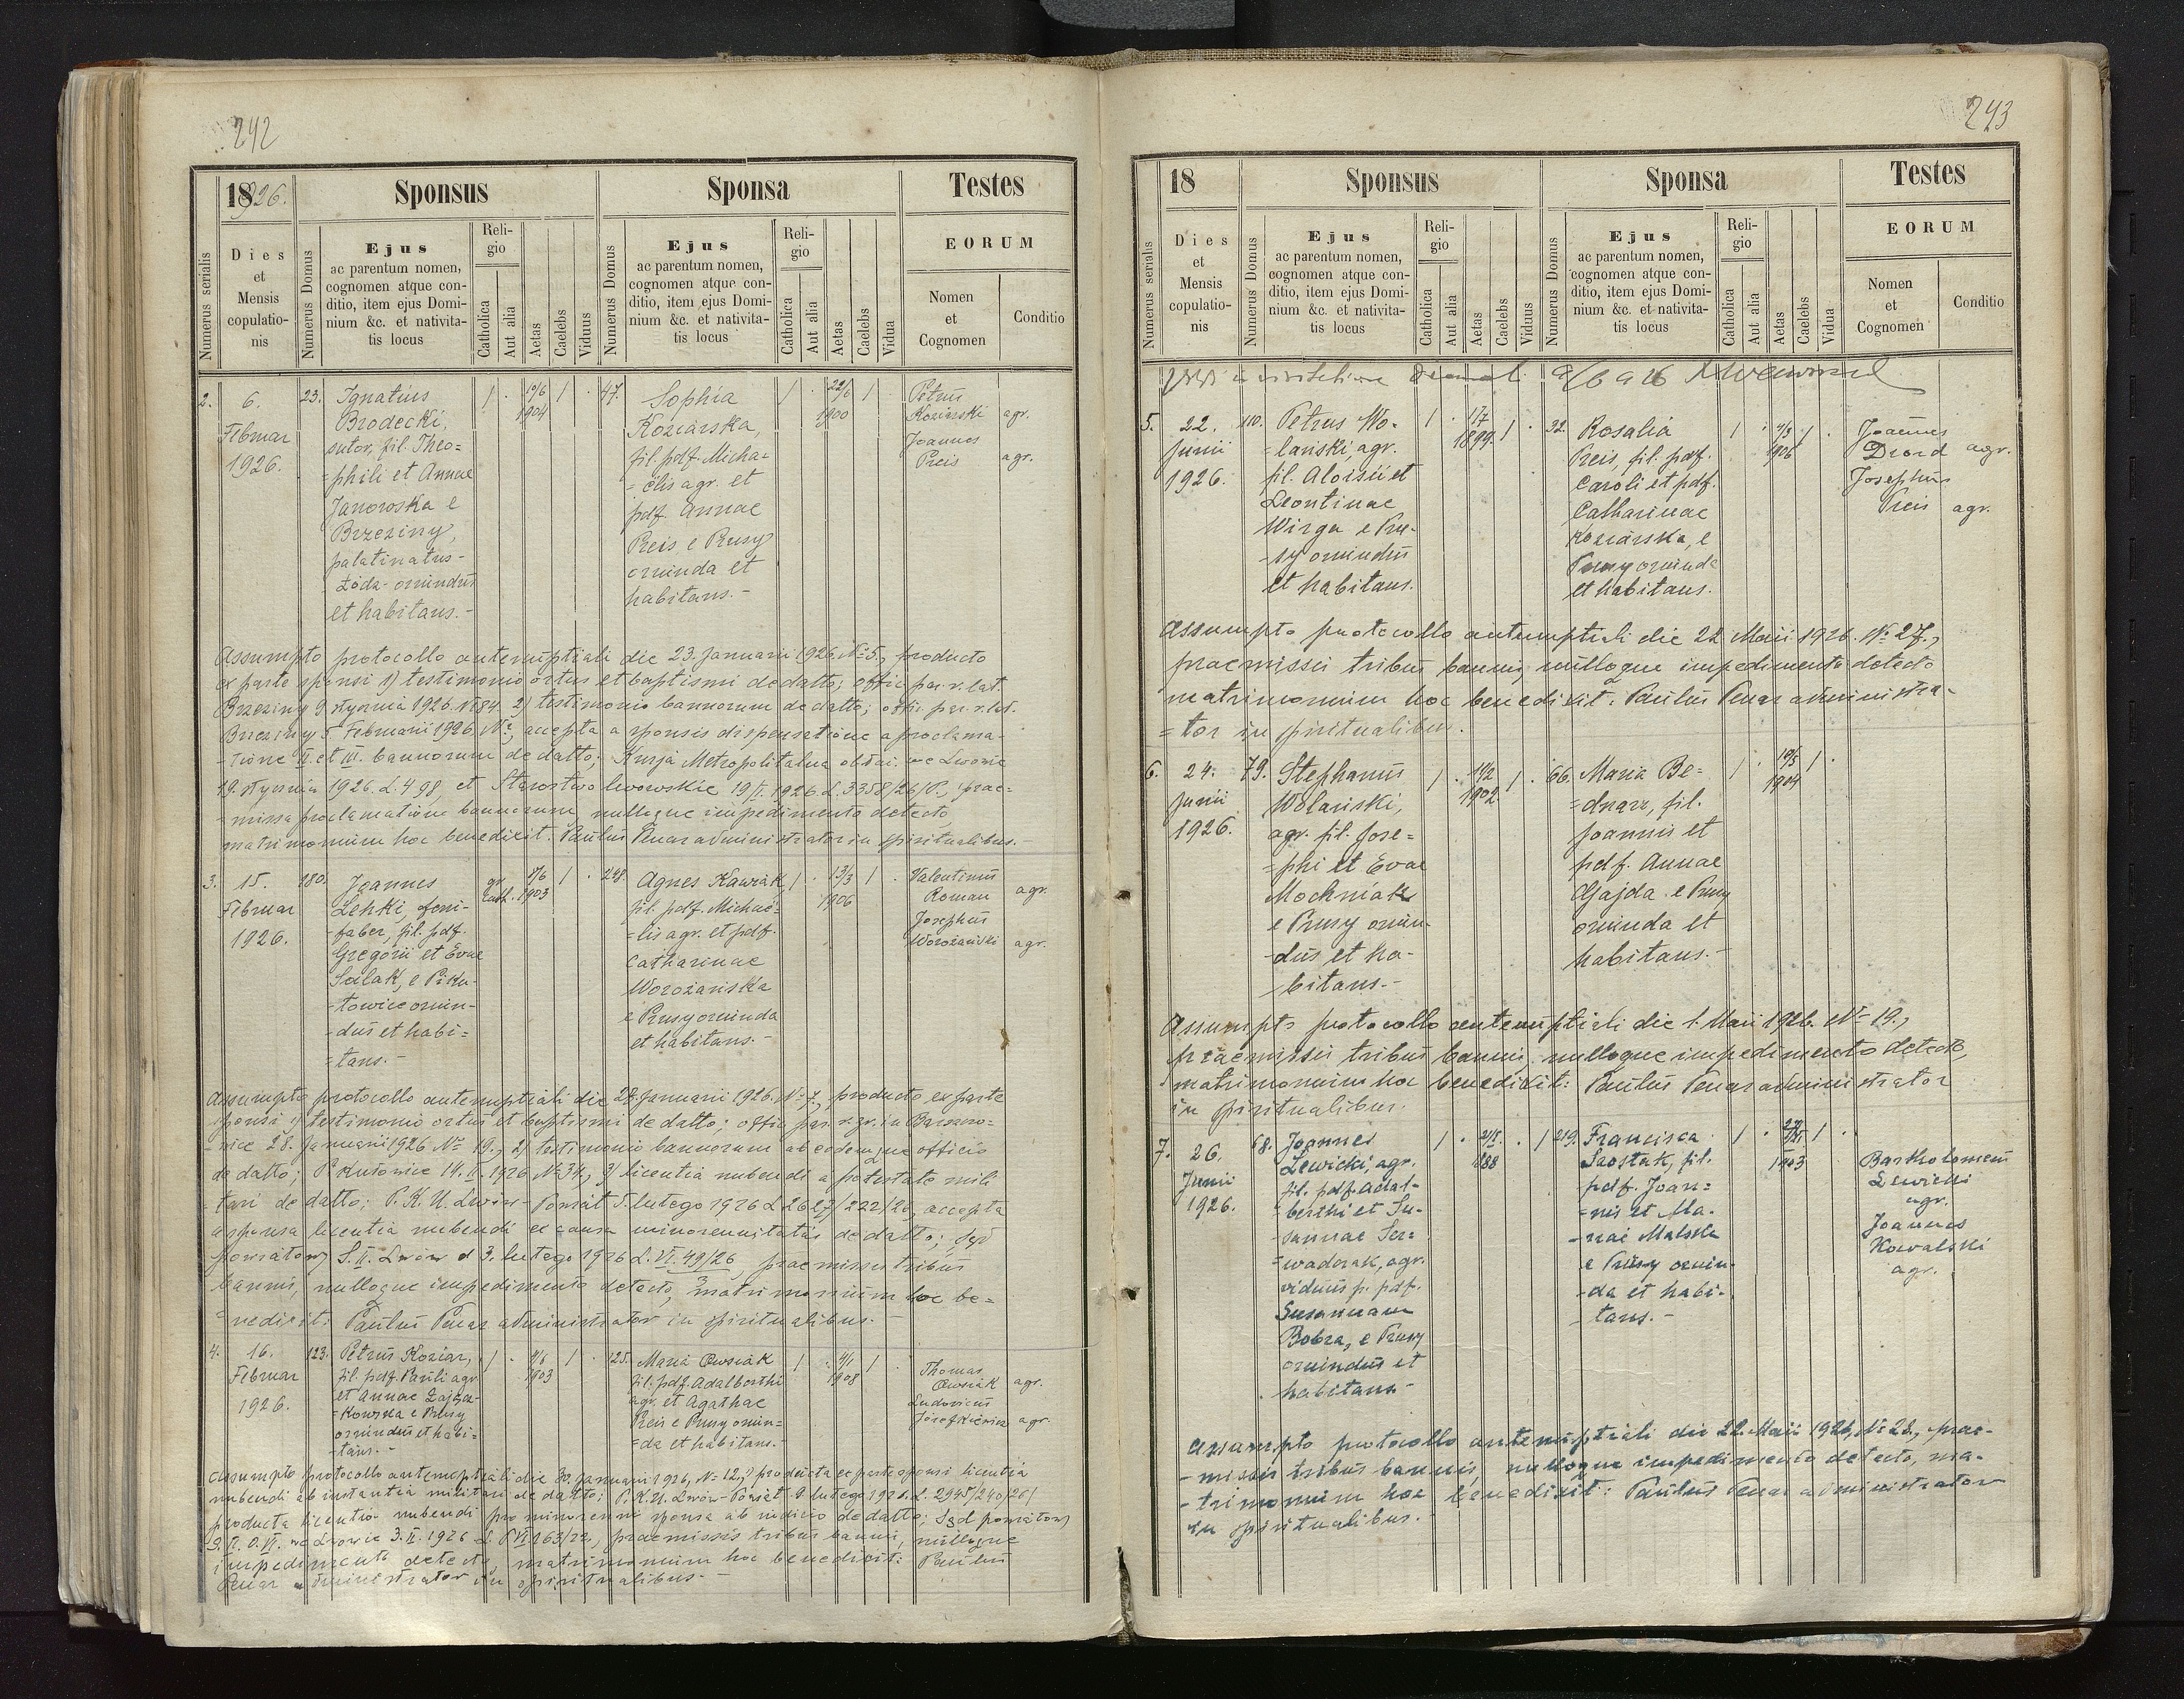 242
18926.
Sponsus
Sponsa
Testes
Numerus serialis
Dies
et
Mensis
copulatio-
nis
Numerus Domus
Ejus
ac parentum nomen,
cognomen atque con-
ditio, item ejus Domi-
nium &c. et nativita-
tis locus
Reli-
gio
Catholica
Aut alia
Aetas
Caelebs
Viduus
Numerus Domus
Ejus
ac parentum nomen,
cognomen atque con-
ditio, item ejus Domi-
nium &c. et nativita-
tis locus
Reli-
gio
Catholica
Aut alia
Aetas
Caelebs
Vidua
EORUM
Nomen
et
Cognomen
Conditio
2.
6.
Februar
1926.
23.
Ignatius
Brodecki,
sutor, fil. Theo=
=phili et Annae
Janowska e
Brzeziny,
palatinatus-
Łódz- oriundus
et habitans.-
1
10/6
1904
1
47.
Sophia
Koziarska,
fil. pdf. Micha=
=ëlis agr. et
pdf. Annae
Preis e Prusy
oriunda et
habitans.-
1
22/6
1900
1
Petrus
Koziarski agr.
Joannes
Preis agr.
Assumpto protocollo antenuptiali die 23. Januarii 1926. № 5., producto
ex parte sponsi 1) testimonio ortus et baptismi de datto; offic. par. r. lat.
Brzeziny 9 stycznia 1926. № 84. 2) testimonio bannorum de datto; offic. par. r. lat.
Brzeziny 5. Februarii 1926. №, accepta a sponsis dispensatione a proclama-
-tione II. et III. bannorum de datto; Kurja Metropolitalna obł. łac. we Lwowie
19. stycznia 1926. L. 498, et Starostwo lwowskie 19/I. 1926. L. 3358/26/P., prae=
-missa proclamatione bannorum, nulloque impedimento detecto
matrimonium hoc benedixit. Paulus Penar administrator in spiritualibus.-
3.
15.
Februar
1926.
280.
Joannes
Lehki, feni-
-faber, fil. pdf.
Gregorii et Evae
Salak, e Piku-
-towice oriun-
-dus et habi=
=tans.-
gr.
cath.
8/6
1903
1
248.
Agnes Kawzak,
fil. pdf. Michae=
=lis agr. et pdf.
Catharinae
Worożańska
e Prusy oriunda
et habitans.-
1
13/3
1906
1
Valentinus
Roman agr.
Josephus
Worożański agr.
Assumpto protocollo antenuptiali die 28. Januarii 1926. № 7., producto ex parte
sponsi 1) testimonio ortus et baptismi de datto; offic. par. r. gr. in
28. Januarii 1926 № 19., 2) testimonio bannorum ab eodemque officio
de datto; Pikułowice 14. II. 1926. № 34, 3) licentia nubendi a potestate mili
tari de datto; P.K.U. Lwów- Powiat 5. lutego 1926 L 2627/222/26, accepta
a sponsa licentia nubendi ex causa minorennitatis de datto; Sąd
powiatowy S. II. Lwów d 3. lutego 1926 L. VI. 49/26, praemissis tribus
bannis, nulloque impedimento detecto, matrimonium hoc be=
=nedixit: Paulus Penar administrator in spiritualibus.-
4.
16.
Februar
1926.
123.
Petrus Koziar,
fil. pdf. Pauli agr
et Annae Zającz-
=kowska e Prusy
oriundus et habi=
-tans.-
1
1903
1
125.
Maria Owsiak
fil. pdf. Adalberthi
agr. et Agathae
Preis e Prusy oriun=
=da et habitans.-
1
4/1
1908
1
Thomas
Owsiak agr.
Ludovicus
Józefkiewicz agr.
Assumpto protocollo antenuptiali die 30. Januarii 1926, № 12., producta ex parte sponsi licentia
nubendi ab instantia militari de datto; P.K.U. Lwów- Powiat 9 lutego 1926. L. 2945/240/26/
producta licentia nubendi pro minorenni sponsa ab iudicio de datto; Sąd powiatowy
S. II. O. VI. we Lwowie 3. II. 1926 L. P VI 263/22, praemissis tribus bannis, nulloque
impedimento detecto, matrimonium hoc benedixit: Paulus
Penar administrator in spiritualibus.-
243
18
Sponsus
Sponsa
Testes
Numerus serialis
Dies
et
Mensis
copulatio-
nis
Numerus Domus
Ejus
ac parentum nomen,
cognomen atque con-
ditio, item ejus Domi-
nium &c. et nativita-
tis locus
Reli-
gio
Catholica
Aut alia
Aetas
Caelebs
Viduus
Numerus Domus
Ejus
ac parentum nomen,
cognomen atque con-
ditio, item ejus Domi-
nium &c. et nativita-
tis locus
Reli-
gio
Catholica
Aut alia
Aetas
Caelebs
Vidua
EORUM
Nomen
et
Cognomen
Conditio
in visitatione
5.
22.
Junii
1926.
110.
Petrus Wo-
=lanski, agr.
fil. Aloisii et
Leontinae
Wirga e Pru-
-sy oriundus
et habitans.
1
1/7
1899.
1
32.
Rosalia
Preis, fil. pdf.
Caroli et pdf.
Catharinae
Koziarska, e
Prusy oriunda
et habitans.
1
4/3
1906
1
Joannes
Drozd agr.
Josephus
Preis agr.
Assumpto protocollo antenuptiali die 22. Maii 1926. № 27.,
praemissis tribus bannis, nulloque impedimento detecto
matrimonium hoc benedixit: Paulus Penar administra-
=tor in spiritualibus.
6.
24.
Junii
1926.
79.
Stephanus
Wolański,
agr. fil. Jose=
=phi et Evae
Mochniak
e Prusy oriun-
-dus et ha-
bitans.-
1
1/2
1902.
1
66.
Maria Be=
=dnarz, fil.
Joannis et
pdf. Annae
Gajda e Prusy
oriunda et
habitans.-
1
18/3
1904
1
Assumpto protocollo antenuptiali die 1. Maii 1926. № 19.,
praemissis tribus bannis, nulloque impedimento detecto,
matrimonium hoc benedixit: Paulus Penar administrator
in spiritualibus.
7.
26.
Junii
1926.
68.
Joannes
Lewicki, agr.
fil. pdf. Adal-
-berthi et Su-
-sannae Ser=
=wadczak, agr.
viduus p. pdf.
Susannam
Bobra, e Prusy
oriundus et
habitans-
1
1
219.
Francisca
Szostak, fil.
pdf. Joan=
=nis et Ma-
-riae Malska
e Prusy oriun-
-da et habi-
-tans.-
1
1903
1
Bartholomeus
Lewicki
agr.
Joannes
Kowalski
agr.
Assumpto protocollo antenuptiali die 22. Maii 1926, № 28., prae-
-missis tribus bannis, nulloque impedimento detecto, ma-
-trimonium hoc benedixit: Paulus Penar administrator
in spiritualibus.-